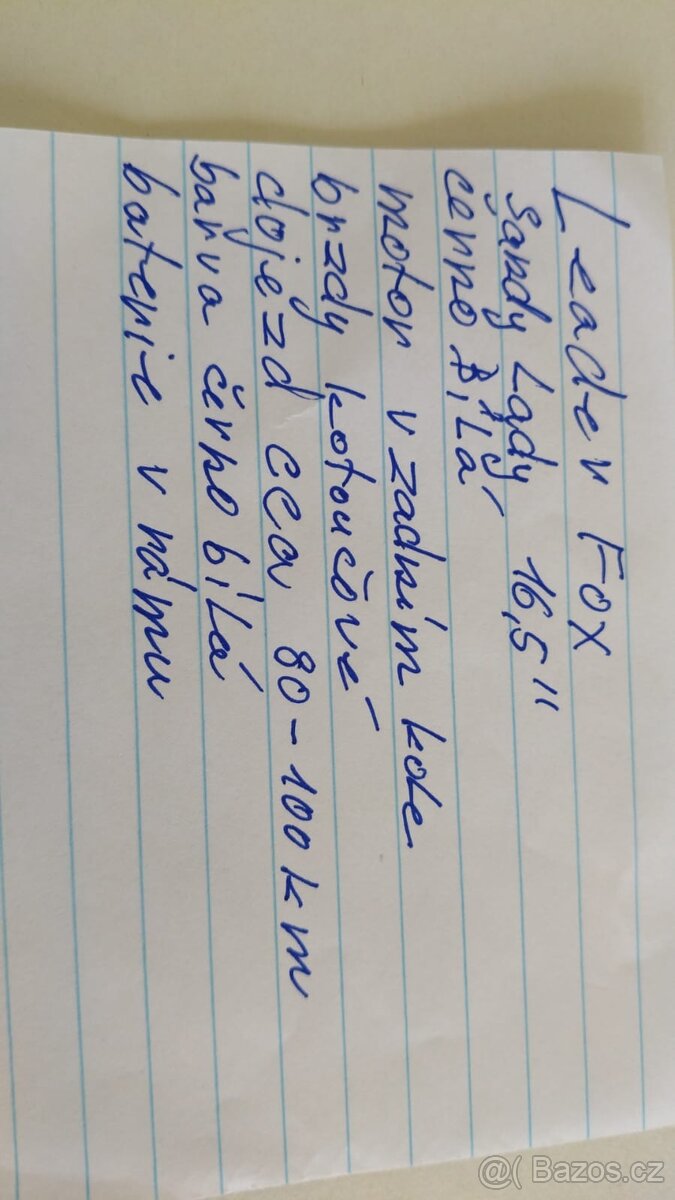 Leader Fox
Sandy Lady, 16,5"
černo Bílá
motor v zadním kole
brzdy kotoučové
dojezd cca 80-100 km
barva černo bílá
baterie v rámu
@( Bazos.cz